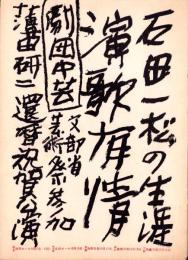 石田一松の生涯
演歌有情
文部省
芸術祭参加
劇団中芸
薄田研二還暦祝賀公演